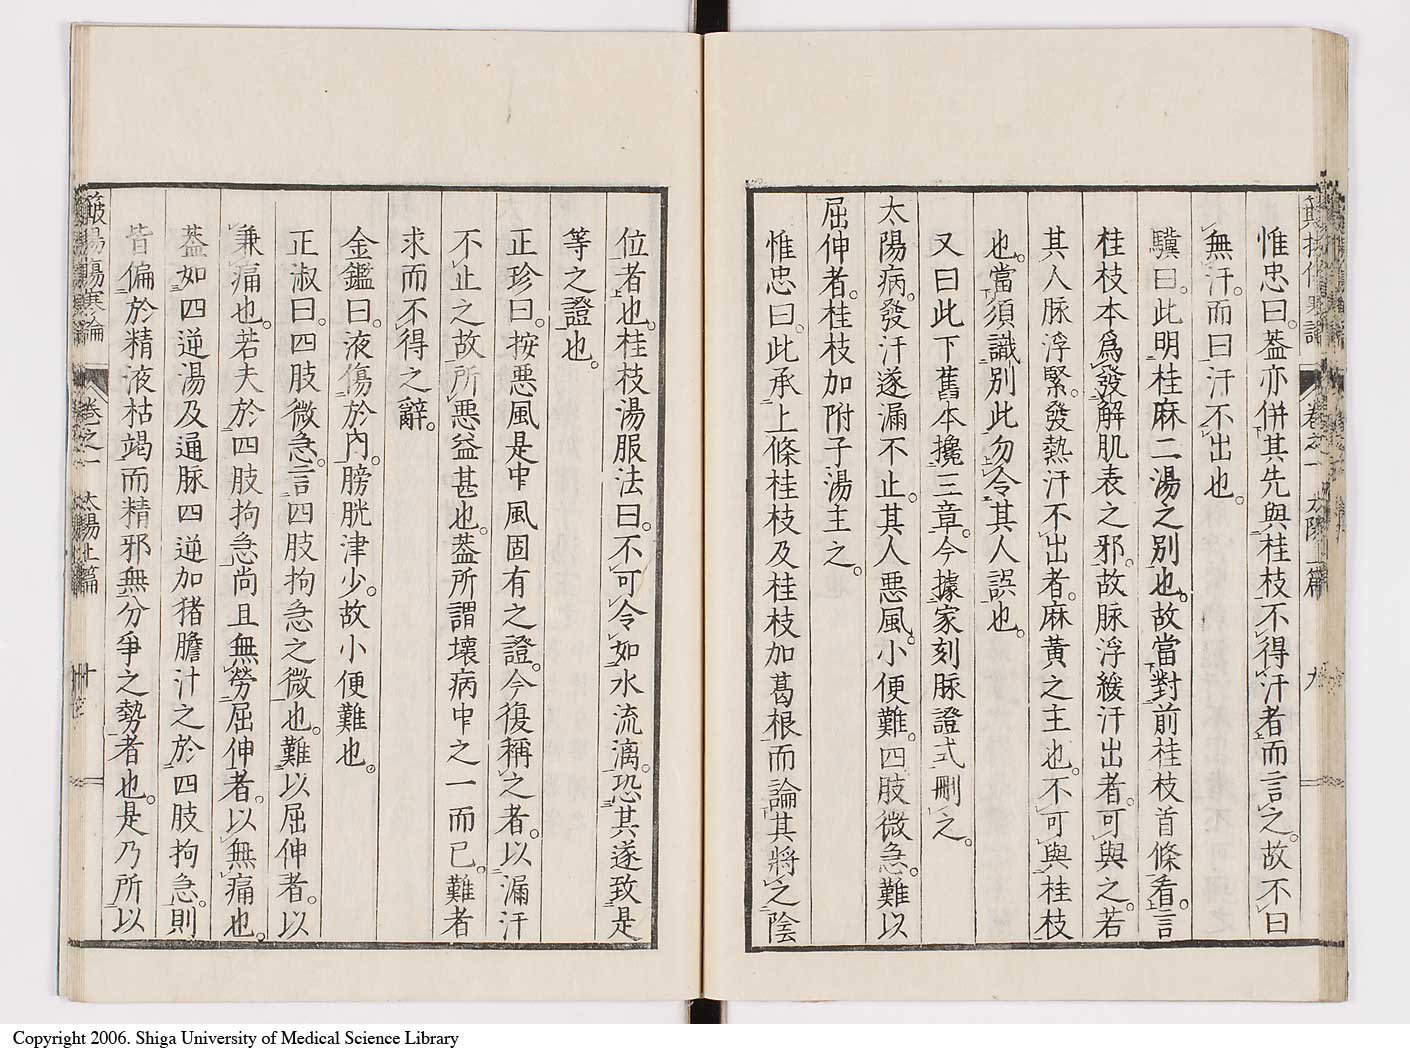 惟忠曰。蓋亦併其先與桂枝不得汗者而言之。故不曰
無汗。而曰汗不出也。
驥曰。此明桂麻二湯之別也。故當對前桂枝首條看。言
桂枝本爲發解肌表之邪。故脉浮緩汗出者。可與之。若
其人脉浮緊。發熱汗不出者。麻黃之主也。不可與桂枝
也。當須識別此勿令其人誤也。
又曰此下舊本攙三章。今據家刻脉證式刪之。
太陽病。發汗遂漏不止。其人惡風。小便難。四肢微急。難以
屈伸者。桂枝加附子湯主之。
惟忠曰。此承上條桂枝及桂枝加葛根而論其將之陰
位者也。桂枝湯服法曰。不可令如水流漓。恐其遂致是
等之證也。
正珍曰。按惡風是中風固有之證。今復稱之者。以漏汗
不止之故。所惡益甚也。蓋所謂壞病中之一而已。難者
求而不得之辭。
金鑑曰。液傷於內。膀胱津少。故小便難也。
正淑曰。四肢微急。言四肢拘急之微也。難以屈伸者。以
兼痛也。若夫於四肢拘急尚且無勞屈伸者。以無痛也。
蓋如四逆湯及通脉四逆加猪膽汁之於四肢拘急。則
皆偏於精液枯竭而精邪無分爭之勢者也。是乃所以
傷寒論 卷之一 太陽上篇 十
Copyright 2006. Shiga University of Medical Science Library